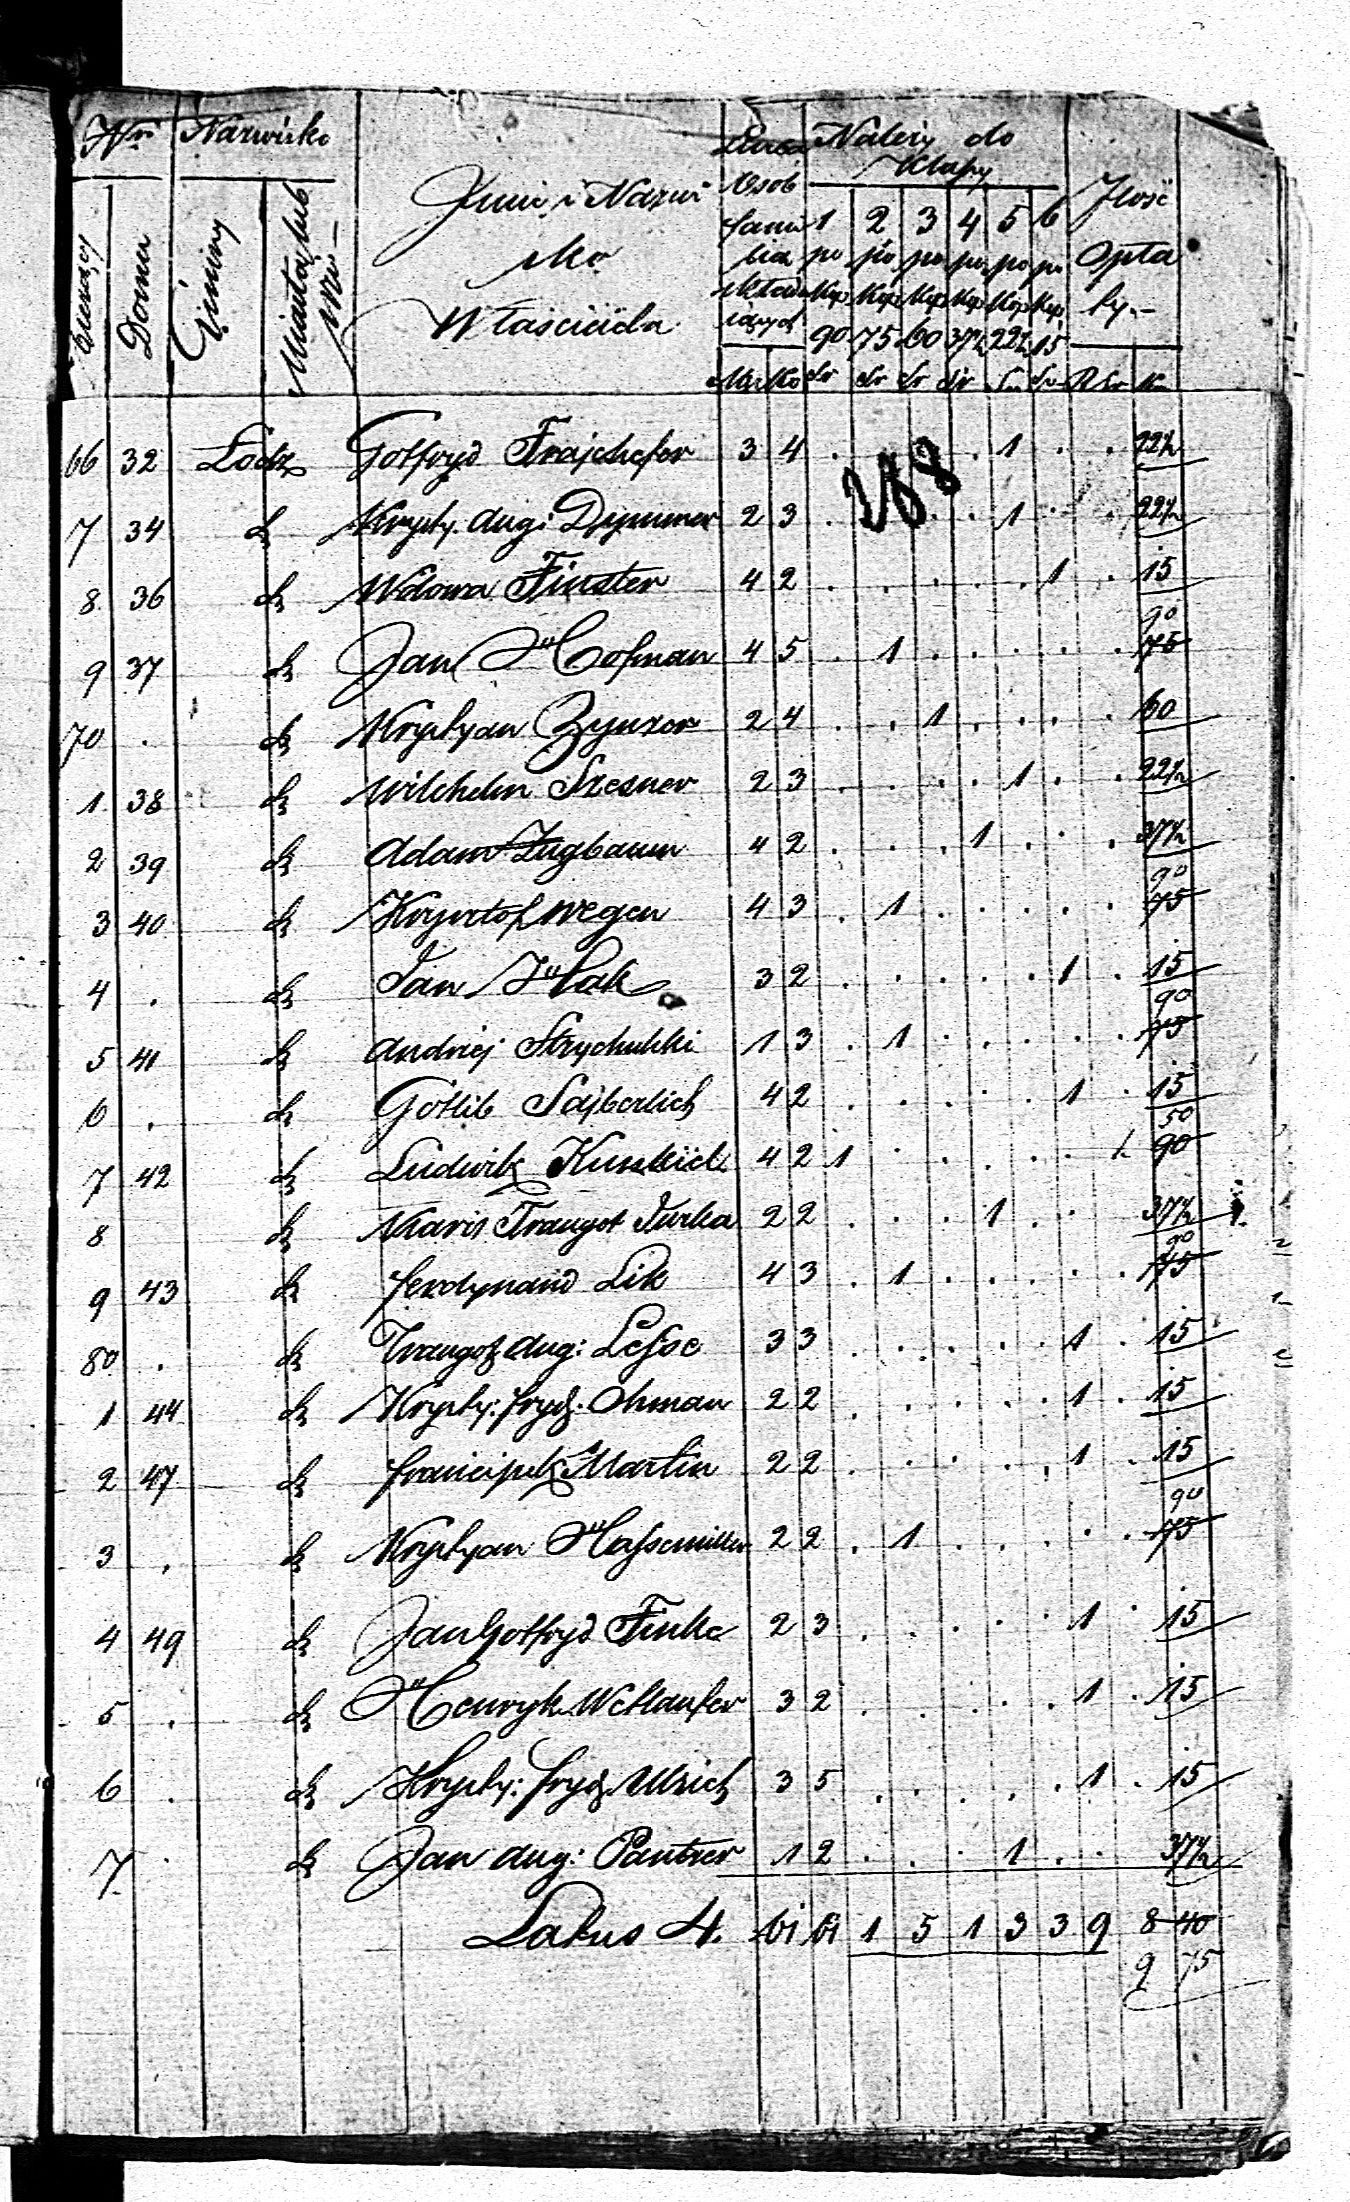 Nr Nazwisko Liczba Należy do Klassy
bieżący Domu Gminy Miasta lub Wsi
Imie i Nazwisko Właściciela
Osob familia składaiących
1 2 3 4 5 6 Ilość
po po po po po po Opłaty
Kop Kop Kop Kop Kop Kop
90 75 60 37½ 22½ 15
66 32 Łodz Gotfryd Frajchefer 3 4 . . . . 1 . . 22½
288
7 34 d Krysty. Aug: Dymmer 2 3 . . . 1 . . 22½
8. 36 d Wdowa Finster 4 2 . . . . . 1 . 15
90
9 37 d Jan Hofman 4 5 . 1 . . . . . 75
70 . d Krystyan Zynxer 2 4 . . 1 . . . . 60
1 38 d Wilchelm Szesner 2 3 . . . . 1 . . 22½
2 39 d Adam Zugbaum 4 2 . . . 1 . . . 37½
90
3 40 d Krysztof Wegen 4 3 . 1 . . . . . 75
4 . d Jan Hak 3 2 . . . . . 1 . 15
90
5 41 d Andrzej Strychulski 1 3 . 1 . . . . . 75
6 . d Gotlib Sajberlich 4 2 . . . . . 1 . 15
50
7 42 d Ludwik 4 2 1 . . . . . 1 90
8 d Traugot Jurka 2 2 . . . 1 . . 37½
90
9 43 d Ferdynand Lik 4 3 . 1 . . . . . 75
80 . d Traugot Aug: Lesse 3 3 . . . . . 1 . 15
1 44 d Krysty: Fryd. Ohman 2 2 . . . . . 1 . 15
2 47 d Franciszek Martin 2 2 . . . . . 1 . 15
90
3 . d Krystyan Hassemiller 2 2 . 1 . . . . . 75
4 49 d Jan Gotfryd Finke 2 3 . . . . . 1 . 15
5 . d Henryk Wetlaufer 3 2 . . . . . 1 . 15
6 . d Krysty: Fryd. Ulrich 3 5 . . . . . 1 . 15
7 . d Jan Aug: Pantzer 1 2 . . . 1 . . 37½
Latus 4. 61 61 1 5 1 3 3 9 8 40
9 75